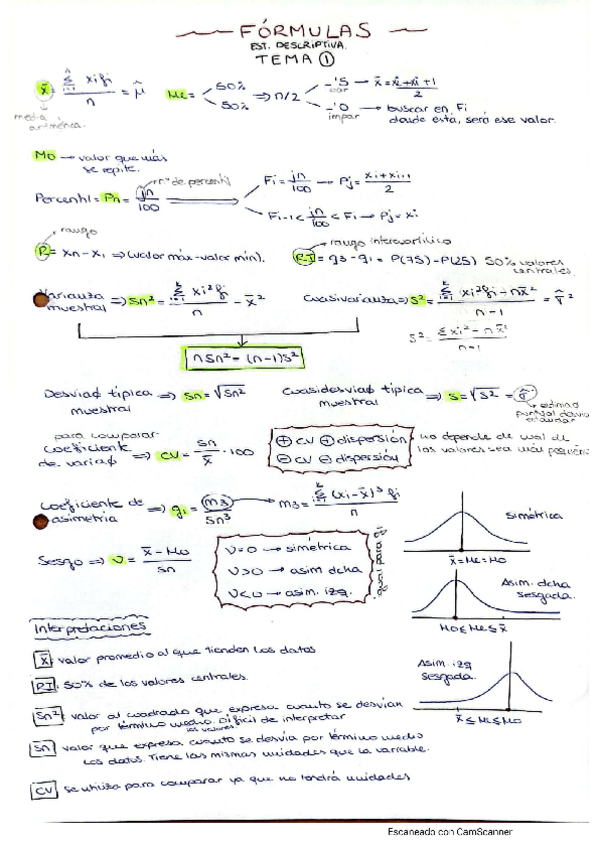 FÓRMULAS
EST. DESCRIPTIVA.
TEMA ①
x̄ = Σ xi fi / n = μ̂
media aritmética.
Me = 50% 50% ⇒ n/2
par → x̄ = xi + xi+1 / 2
impar → buscar en Fi
donde está, será ese valor.
Mo → valor que más
se repite.
nº de percentil
Percentil = Pn = jn/100 ⇒
Fi = jn/100 → Pj = xi + xi+1 / 2
Fi-1 < jn/100 < Fi → Pj = xi
rango
R = xn - x1 ⇒ (valor máx - valor mín).
rango intercuartílico
R.I = q3 - q1 = P(75) - P(25) 50% valores
centrales.
Varianza
muestral ⇒ Sn² = Σ xi² fi / n - x̄²
Cuasivarianza ⇒ S² = Σ xi² fi - nx̄² / n-1 = σ̂²
S² = Σ xi² - nx̄² / n-1
nSn² = (n-1)S²
Desviaϕ típica
muestral ⇒ Sn = √Sn²
Cuasidesviaϕ típica
muestral ⇒ S = √S² = σ̂
para comparar
Coeficiente
de variaϕ ⇒ CV = Sn/x̄ · 100
⊕ CV ⊕ dispersión
⊖ CV ⊖ dispersión
no depende de cual de
los valores sea más pequeño
Coeficiente de
asimetría ⇒ g1 = m3/Sn³
m3 = Σ (xi - x̄)³ fi / n
Sesgo ⇒ V = x̄ - Mo / Sn
V=0 → simétrica
V>0 → asim dcha
V<0 → asim. izq.
igual para g1
Simétrica
x̄ = Me = Mo
Asim. dcha
sesgada.
Mo ≤ Me ≤ x̄
Asim. izq
sesgada.
x̄ ≤ Me ≤ Mo
Interpretaciones
x̄: valor promedio al que tienden los datos
RI: 50% de los valores centrales.
Sn²: valor al cuadrado que expresa cuanto se desvían
por término medio los valores. Difícil de interpretar
Sn valor que expresa cuanto se desvía por término medio
los datos. Tiene las mismas unidades que la variable.
CV se utiliza para comparar ya que no tendrá unidades
Escaneado con CamScanner